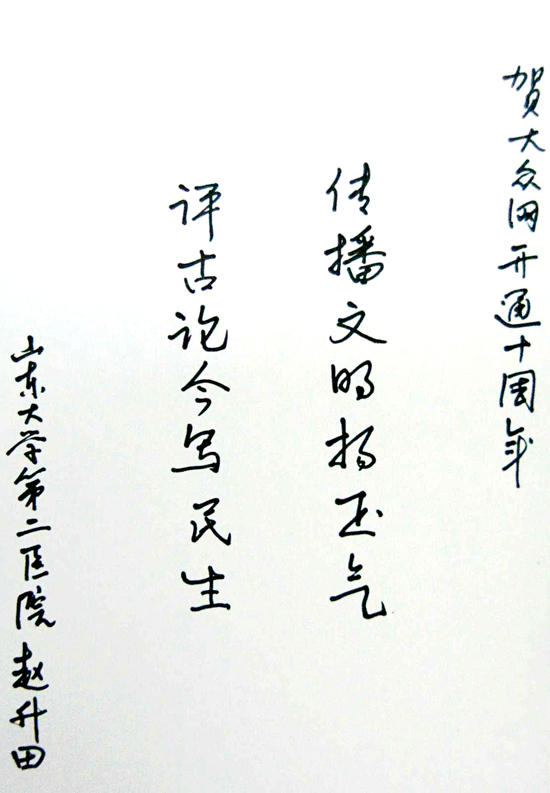 贺大众网开通十周年
传播文明扬正气
评古论今写民生
山东大学第二医院 赵升田